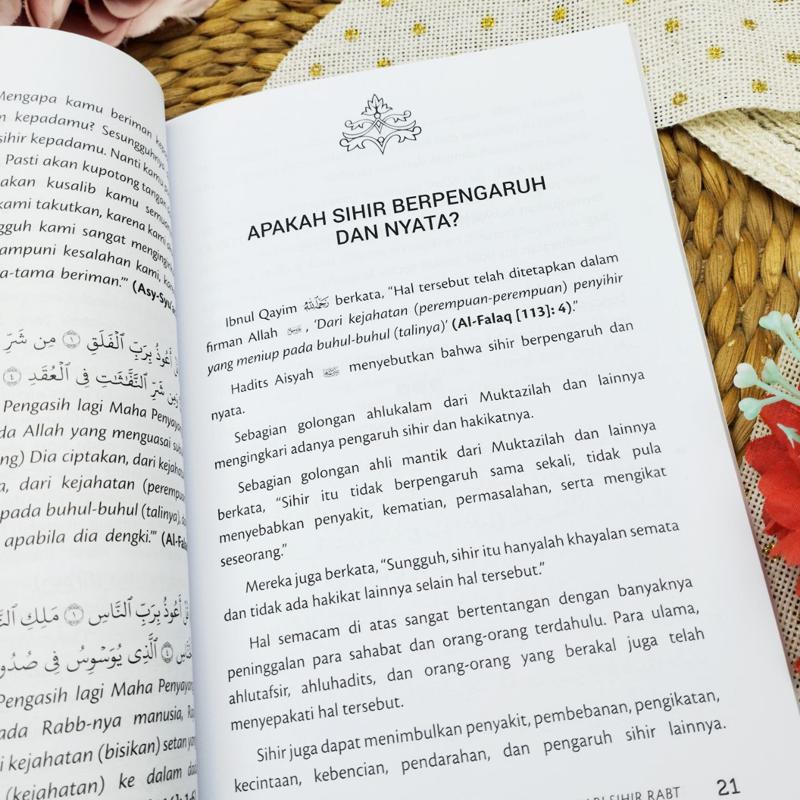 Mengapa kamu beriman
kepadamu? Sesungguhnya
sihir kepadamu. Nanti kamu
Pasti akan kupotong tangan
akan kusalib kamu semua
kami takutkan, karena kami
gguh kami sangat mengingin
ampuni kesalahan kami, kar
a-tama beriman.'" (Asy-Syu'
أَعُوذُ بِرَبِّ ٱلْفَلَقِ ١ مِن شَرِّ
شَرِّ ٱلنَّفَّٰثَٰتِ فِى ٱلْعُقَدِ ٤
Pengasih lagi Maha Penyayang
da Allah yang menguasai
ng) Dia ciptakan, dari kejahatan
a, dari kejahatan (perempu
pada buhul-buhul (talinya),
apabila dia dengki.'" (Al-Fala
أَعُوذُ بِرَبِّ ٱلنَّاسِ ١ مَلِكِ
ٱلَّذِى يُوَسْوِسُ فِى صُدُو
Pengasih lagi Maha Penyayang
ada Rabb-nya manusia,
i kejahatan (bisikan) setan yang
(kejahatan) ke dalam
APAKAH SIHIR BERPENGARUH
DAN NYATA?
Ibnul Qayim رَحِمَهُ ٱللَّهُ berkata, "Hal tersebut telah ditetapkan dalam
firman Allah , 'Dari kejahatan (perempuan-perempuan) penyihir
yang meniup pada buhul-buhul (talinya)' (Al-Falaq [113]: 4)."
Hadits Aisyah menyebutkan bahwa sihir berpengaruh dan
nyata.
Sebagian golongan ahlukalam dari Muktazilah dan lainnya
mengingkari adanya pengaruh sihir dan hakikatnya.
Sebagian golongan ahli mantik dari Muktazilah dan lainnya
berkata, "Sihir itu tidak berpengaruh sama sekali, tidak pula
menyebabkan penyakit, kematian, permasalahan, serta mengikat
seseorang."
Mereka juga berkata, "Sungguh, sihir itu hanyalah khayalan semata
dan tidak ada hakikat lainnya selain hal tersebut."
Hal semacam di atas sangat bertentangan dengan banyaknya
peninggalan para sahabat dan orang-orang terdahulu. Para ulama,
ahlutafsir, ahluhadits, dan orang-orang yang berakal juga telah
menyepakati hal tersebut.
Sihir juga dapat menimbulkan penyakit, pembebanan, pengikatan,
kecintaan, kebencian, pendarahan, dan pengaruh sihir lainnya.
SIHIR RABT 21